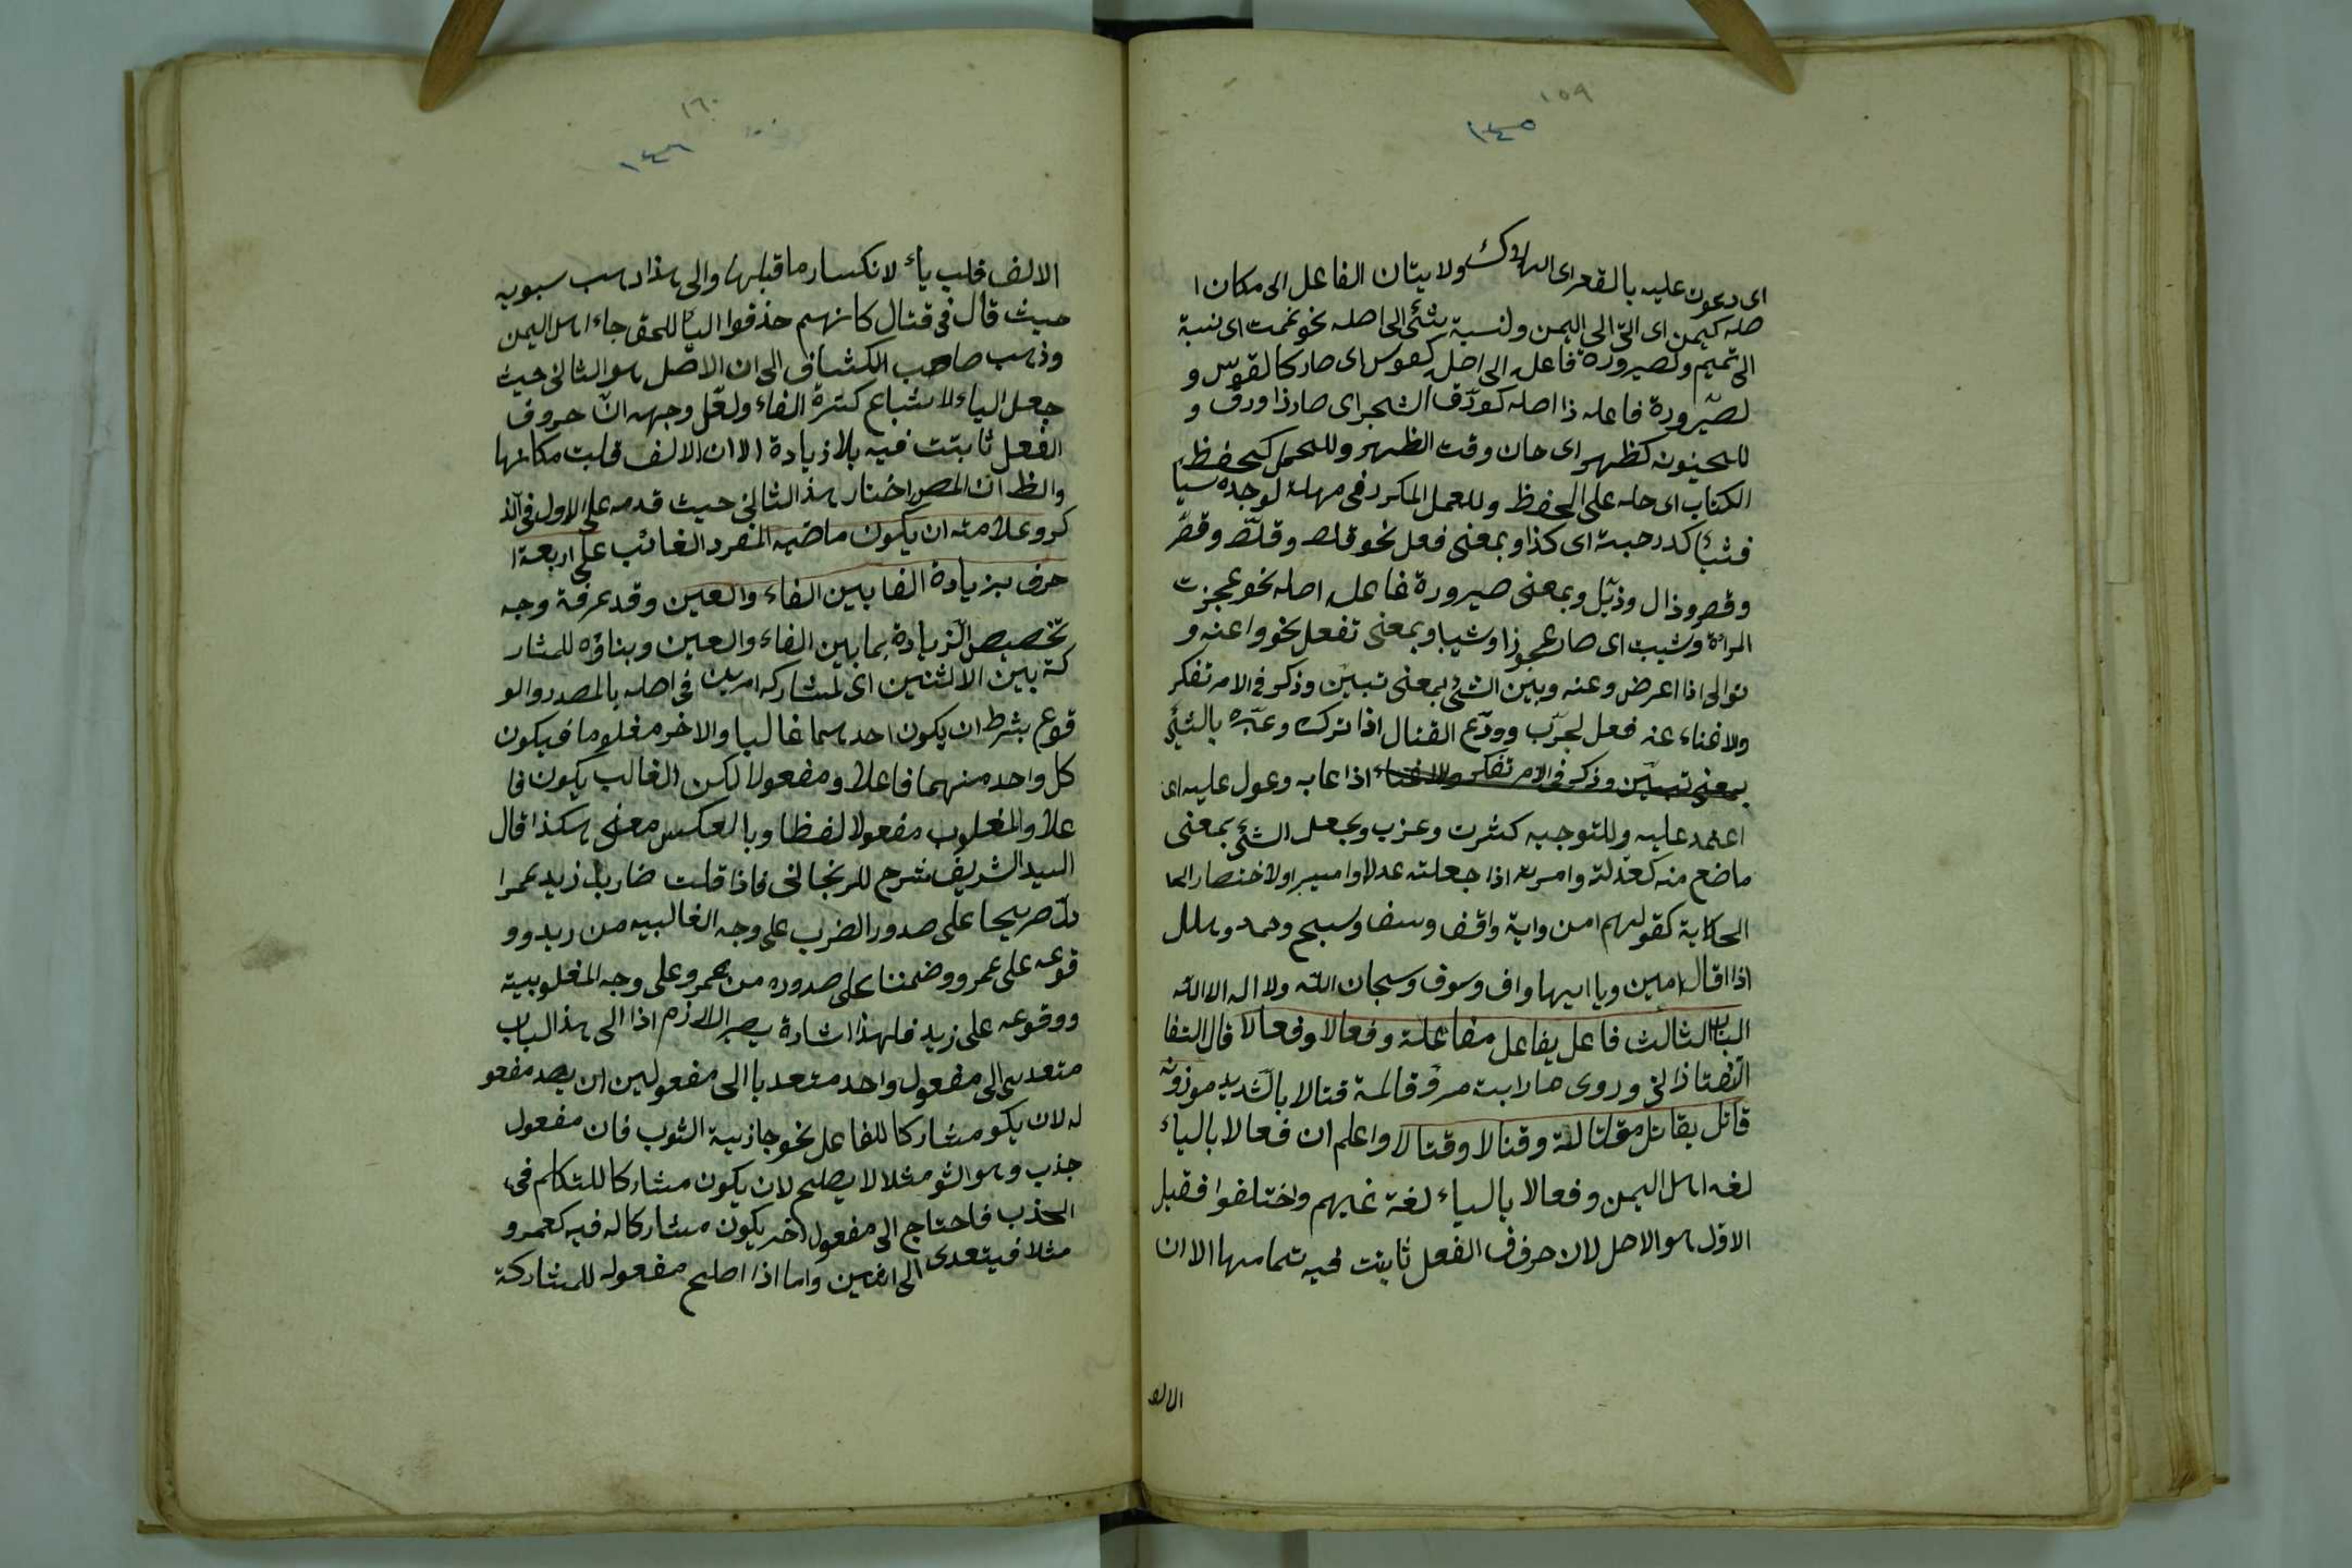 ١٥٩
١٤٥
اى دعون عليه بالقعراى الهلاك ولايتان الفاعل الى مكان ا
صله كيمن اى اتى الى اليمن ولنسبة شئ الى اصله نحو تممت اى نسبة
الى تميم ولصيرورة فاعله الى اصله كقوس اى صار كالقوس و
لصيرورة فاعله ذا اصله كورّق الشجر اى صار ذا ورق و
للحينونه كظهر اى حان وقت الظهر وللحمل كحفظ
الكتاب اى حمله على الحفظ وللعمل المكرر فى مهلة لوجده شيأ
فشيأ كدرجته اى كذا وبمعنى فعل نحو قلص وقلّص وقصّر
وقصر وذال وذيّل وبمعنى صيرورة فاعل اصله نحو عجزت
المرأة وشيب اى صار عجوزا وشيبا وبمعنى تفعل نحو واعنه و
توالى اذا اعرض وعنه وبين الشئ بمعنى تبيّن وذكر فى الامر تفكر
ولاغناء عنه فعل لجرّب وودّع القتال اذا تركه وعيّره بالشئ
بمعنى تبيّن وذكر فى الامر تفكر ولاغناء اذا عابه وعول عليه اى
اعتمد عليه وللتوجيه كشرت وعزب وبجعل الشئ بمعنى
ماضع منه كعدلته وامرته اذا جعلته عدلا واميرا ولاختصار الحا
الحكاية كقولهم امن واية واقف وسف وسبح وحمد وهلل
اذا اقال امين ويا ايها واف وسوف وسبحان الله ولا اله الا الله
الباب الثالث فاعل يفاعل مفاعلة وفعالا وفيعالا قال التفا
التفتاذانى وروى مارابت مرؤ قالمة قتالا بالتشديد موزونه
قاتل يقاتل مقاتلة وقتالا وقيتالا واعلم ان فيعالا بالياء
لغه اهل اليمن وفعالا بالياء لغة غيرهم واختلفوا فقيل
الاول هو الاصل لان حروف الفعل ثابتت فيه تمامها الا ان
الالف
١٦٠
١٤٦
الالف قلب ياء لانكسار ما قبلها والى هذا ذهب سبويه
حيث قال فى قتال كانهم حذفوا الياء للحق جاء اهل اليمن
وذهب صاحب الكشاف الى ان الاصل هو الثانى حيث
جعل الياء لاشباع كسرة الفاء ولعل وجهه انّ حروف
الفعل ثابتت فيه بلا زيادة الا ان الالف قلبت مكانها
والظ ان المص اختار هذا الثانى حيث قدمه على الاول فى الذ
كر وعلامته ان يكون ماضيه المفرد الغائب على اربعة ا
حرف بزيادة الفا بين الفاء والعين وقد عرفة وجه
تخصيص الزيادة بما بين الفاء والعين وبناؤه للمشار
كة بين الاثنين اى لمشاركه امرين فى اصله بالمصدر والو
قوع بشرط ان يكون احدهما غالبا والاخر مغلوما فيكون
كل واحد منهما فاعلا ومفعولا لكن الغالب يكون فا
علا والمغلوب مفعولا لفظا وبالعكس معنى هكذا قال
السيد الشريف شرح للزنجانى فاذا قلت ضارب زيد عمرا
دلّ صريحا على صدور الضرب على وجه الغالبيه من زيد وو
قوعه على عمرو وضمنا على صدوره من عمرو على وجه المغلوبية
ووقوعه على زيد فلهذا اشارة يصير اللازم اذا الى هذا الباب
متعديى الى مفعول واحد متعديا الى مفعولين ان يصد مفعو
له لان يكو مشاركا للفاعل نحو جاذبية الثوب فان مفعول
جذب وهو الثو مثلا لا يصلح لان يكون مشاركا للتكلم فى
الجذب فاحتاج الى مفعول اخر يكون مشاركا له فيه كعمرو
مثلا فيتعدى الى اثنين واما اذا اصلح مفعوله للمشاركة